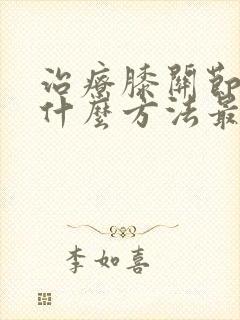 治療膝關節
什麼方法最
李如喜